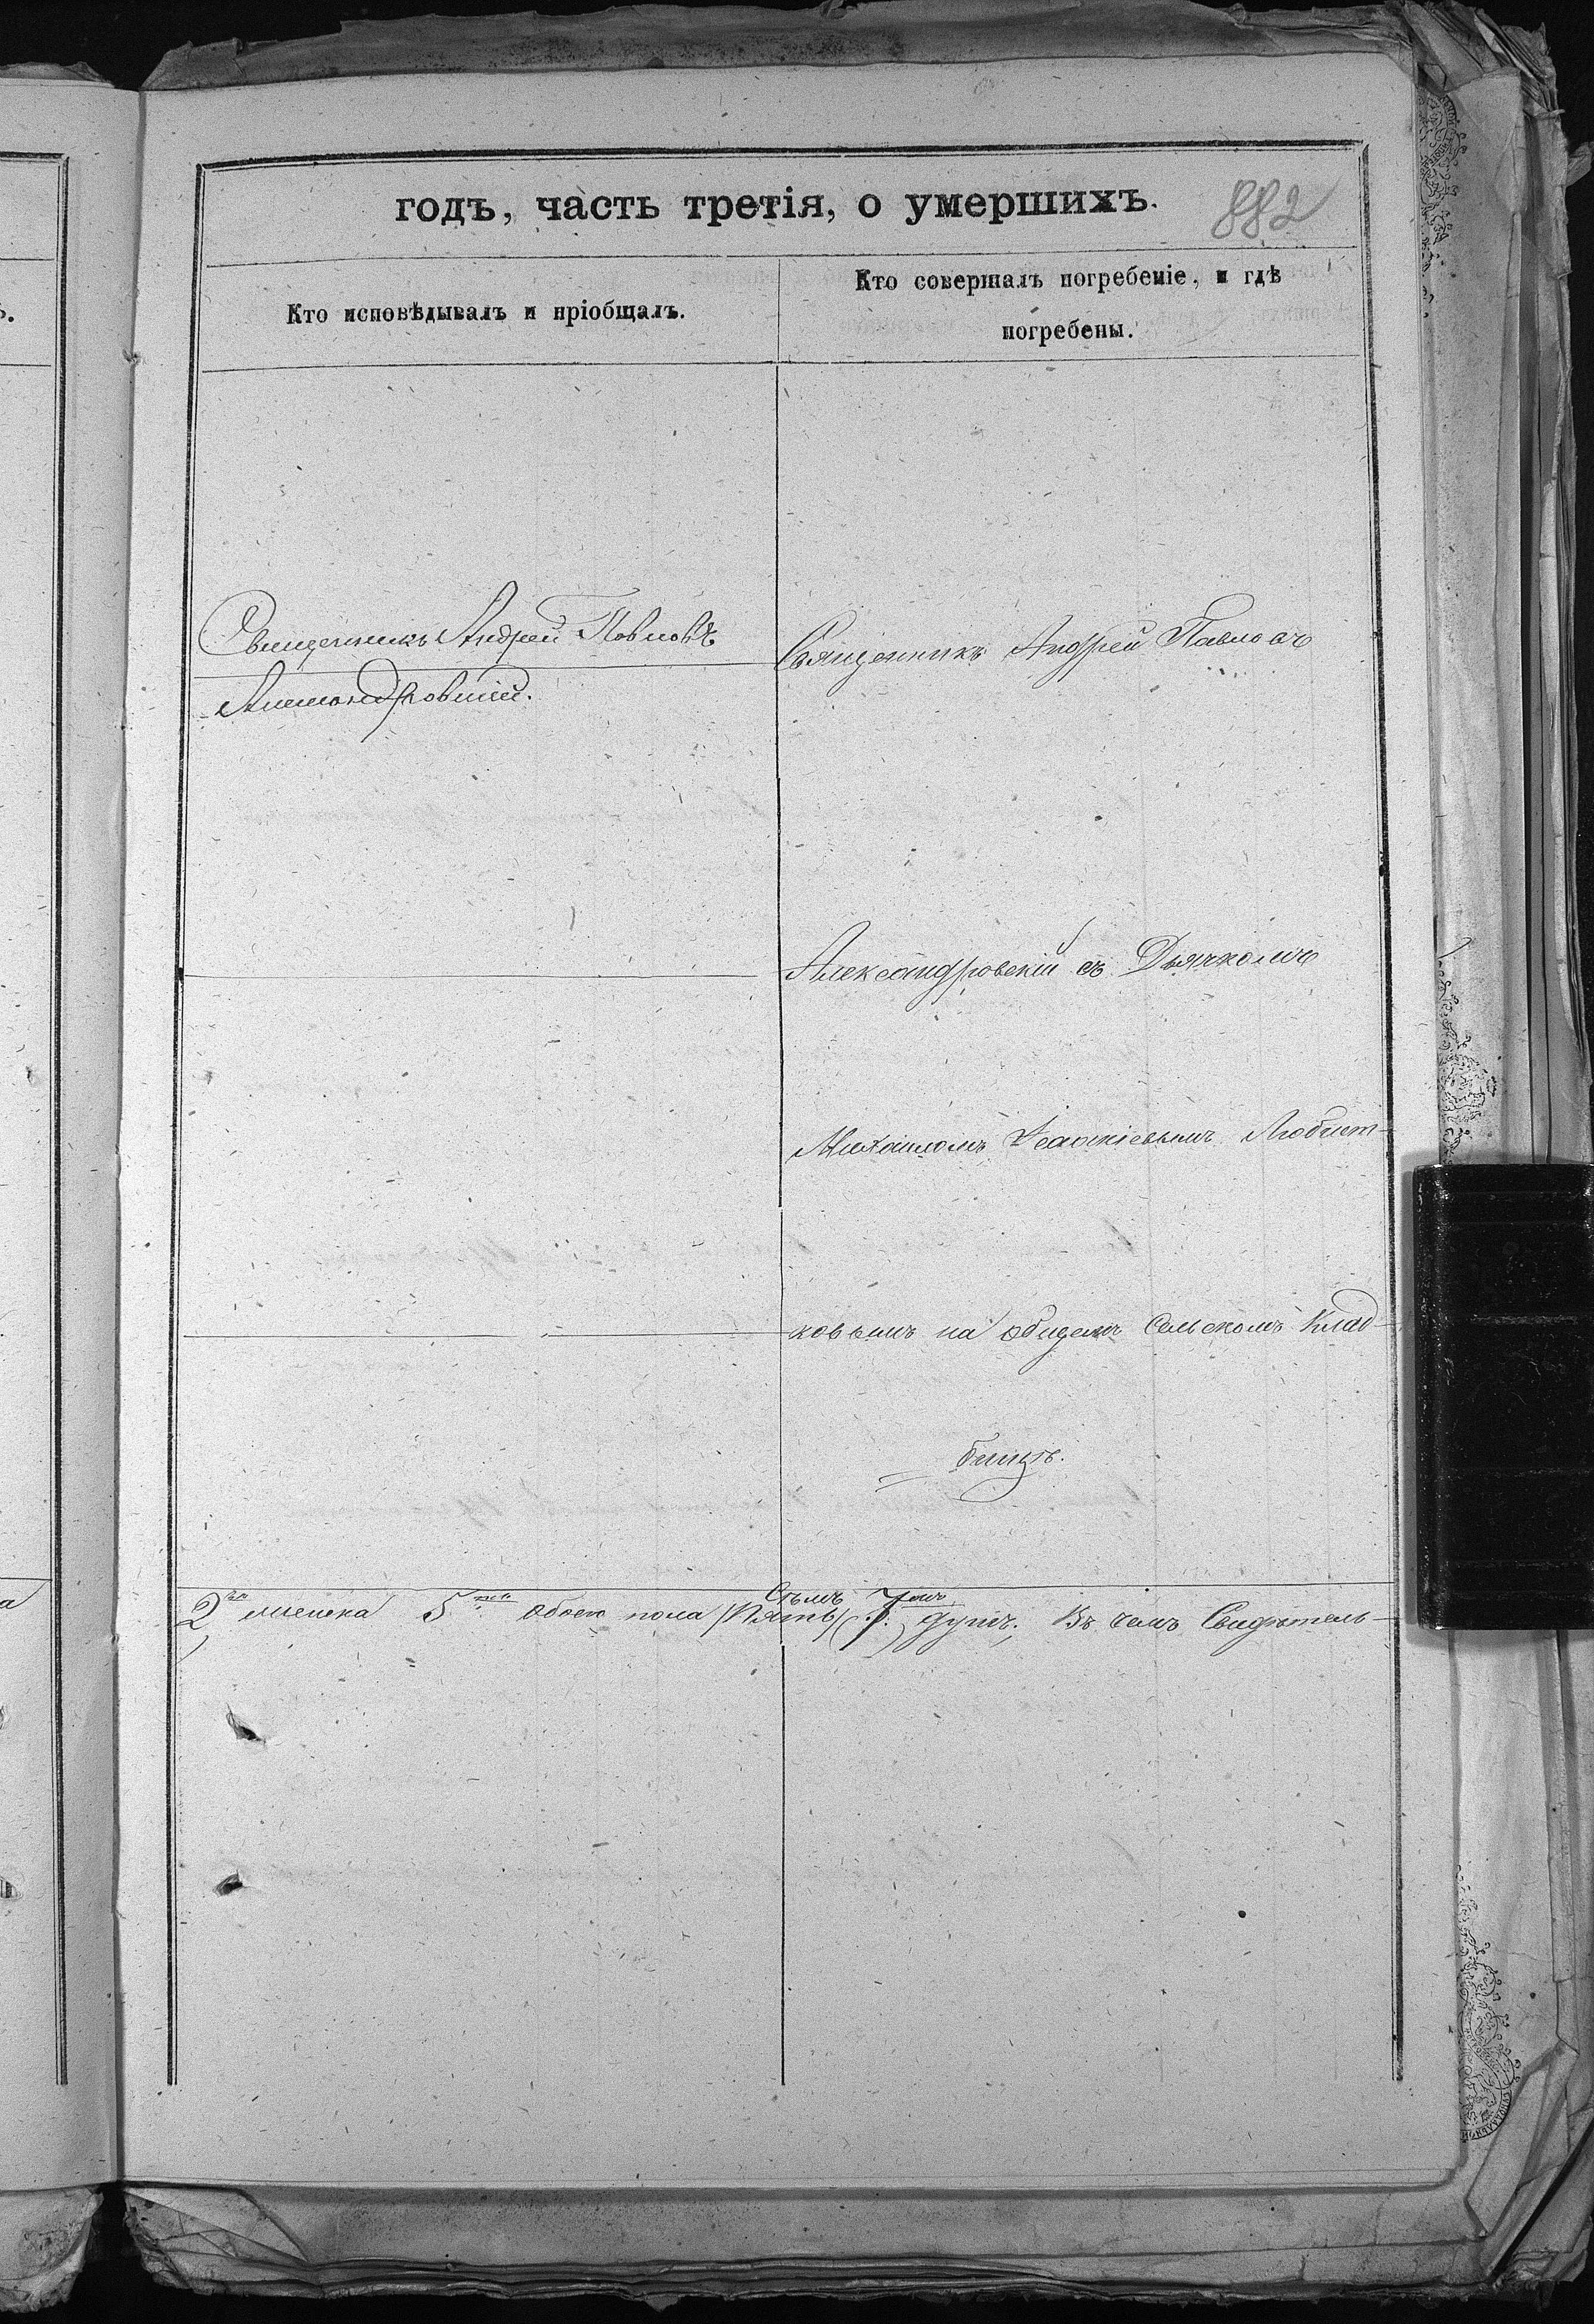 годъ, часть третія, о умершихъ.
882
Кто исповѣдывалъ и пріобщалъ.
Кто совершалъ погребеніе, и гдѣ
погребены.
Священникъ Андрей Павловъ
Александровскій.
Священникъ Андрей Павловъ
Александровскій съ Дьячкомъ
Михаиломъ Іоанніевымъ Любит-
ковымъ на общемъ Сельскомъ Клад-
бищѣ.
2 женска 5 обоего пола /Пять/ Семь (7.) душъ. Въ чемъ Свидѣтель-